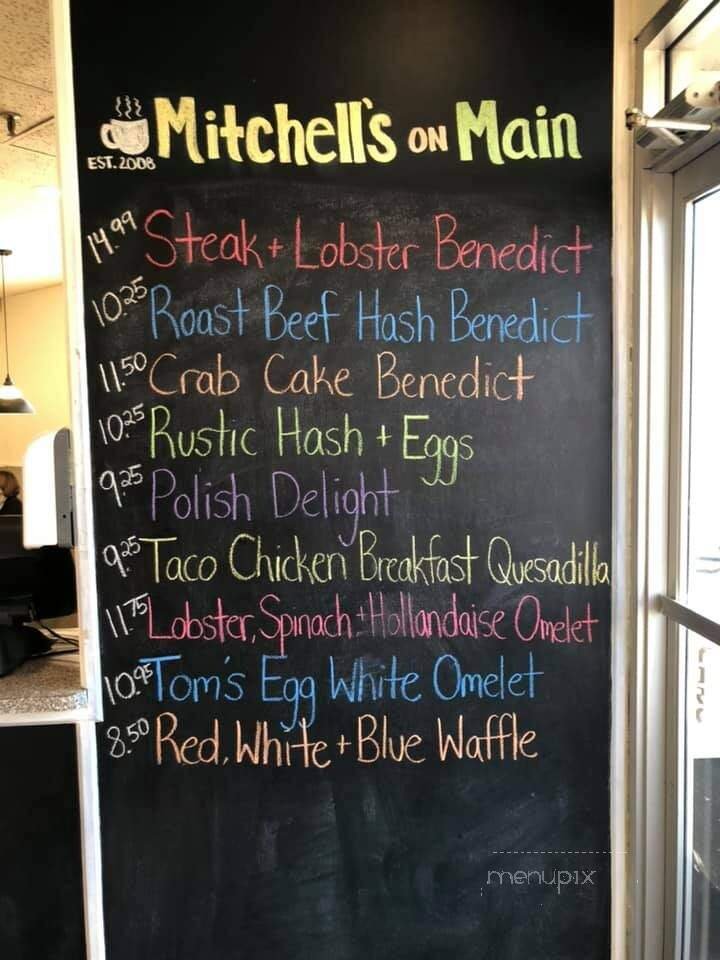 Mitchell's ON Main
EST. 2008
14.99 Steak + Lobster Benedict
10.25 Roast Beef Hash Benedict
11.50 Crab Cake Benedict
10.25 Rustic Hash + Eggs
9.25 Polish Delight
9.25 Taco Chicken Breakfast Quesadilla
11.75 Lobster, Spinach + Hollandaise Omelet
10.95 Tom's Egg White Omelet
8.50 Red, White + Blue Waffle
menupix